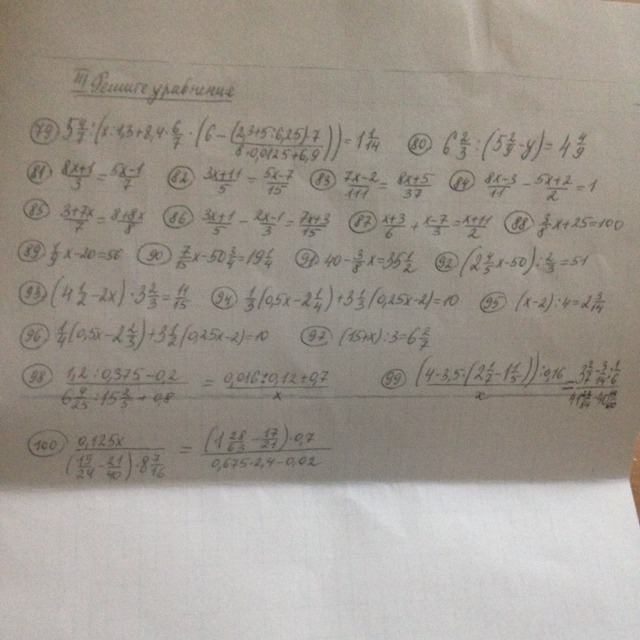 III Решите уравнения
79) 5 4/7 : (x · 1,3 + 8,4 · 6/7 · (6 − (2,3+5:6,25)·7 / (8·0,0125+6,9))) = 1 1/14   80) 6 2/3 : (5 2/9 − y) = 4 4/9
81) (8x+1)/3 = (5x−1)/7   82) (3x+11)/5 = (5x−7)/15   83) (7x−2)/111 = (8x+5)/37   84) (8x−3)/11 − (5x+2)/2 = 1
85) (3+7x)/7 = (8+8x)/8   86) (3x+1)/5 − (2x−1)/3 = (7x+3)/15   87) (x+3)/6 + (x−7)/3 = (x+11)/2   88) 3/8 x + 25 = 100
89) x − 20 = 56   90) 7/15 x − 50 3/4 = 19 1/4   91) 40 − 3/8 x = 35 1/2   92) (2 x − 50) · = 51
93) (4 1/2 − 2x) · 3 = 11/15   94) 1/3 (0,5x − 2 1/4) + 3 1/3 (0,25x − 2) = 10   95) (x − 2) : 4 = 2 3/14
96) 1/4 (0,5x − 2 1/3) + 3 1/2 (0,25x − 2) = 10   97) (15+x) : 3 = 6 2/7
98) (1,2 : 0,375 − 0,2) / (6 : 15 + 0,8) = (0,016 : 0,12 + 0,7) / x   99) (4 − 3,5 · (2 − 1 1/5)) : 0,16 / x =
100) 0,125x / ((19/24 − 21/40) · 8 7/16) = ((1 28/63 − 17/21) · 0,7) / (0,675 · 2,4 − 0,02)